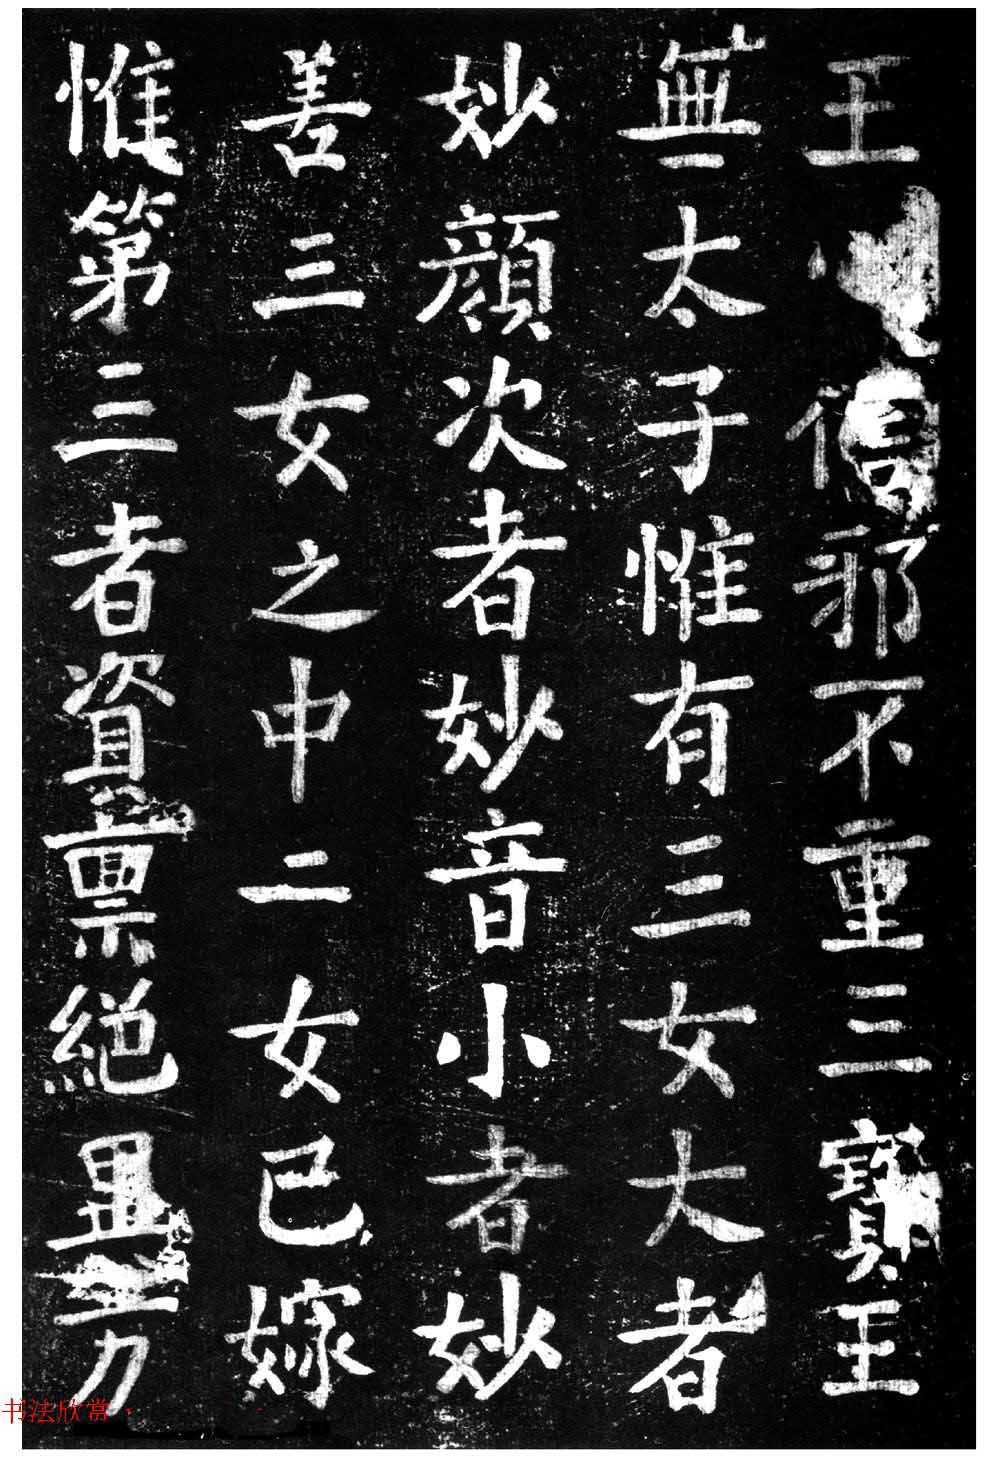 王信邪不重三寶王
無太子惟有三女大者
妙顏次者妙音小者妙
善三女之中二女已嫁
惟第三者資禀絕方
书法欣赏